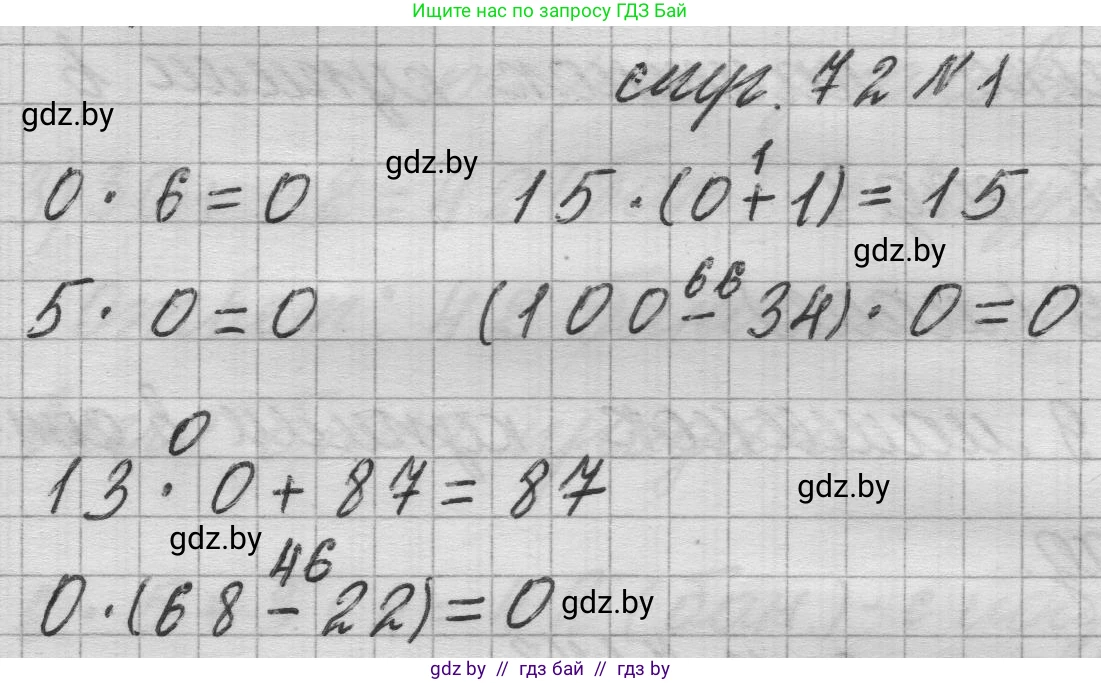 Ищите нас по запросу ГДЗ Бай
стр. 72 №1
gdz.by
gdz.by
1
0 · 6 = 0 15 · (0 + 1) = 15
gdz.by
66
5 · 0 = 0 (100 - 34) · 0 = 0
0
13 · 0 + 87 = 87
gdz.by
gdz.by
46
0 · (68 - 22) = 0
gdz.by
gdz by // гдз бай // гдз by